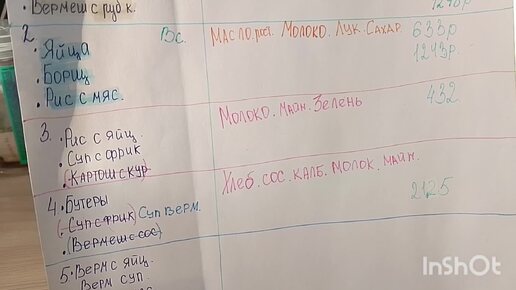 • Вермеш с руб к.
1248р
2. Вс. Масло раст. Молоко. Лук. Сахар. 633р
• Яйца
1243р.
• Борщ
• Рис с мяс.
Молоко. Майн. Зелень 432
3. • Рис с яйц.
• Суп с фрик
• (Картош с кур)
Хлеб. сос. калб. молок. майн.
4. • Бутеры
2125
• (Суп с фрик) Суп верм.
• (Вермеш с сос)
5. • Верм с яйц.
Верм суп.
InShOt